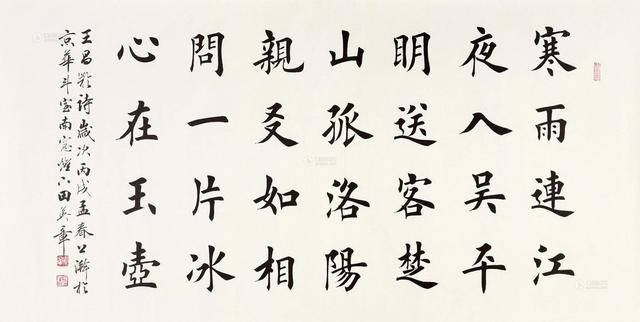 寒雨連江
夜入吴平
明送客楚
山孤洛陽
親友如相
問一片冰
心在玉壺
王昌齡詩歲次丙戌孟春上澣於
京華斗室南窗燈下田英章